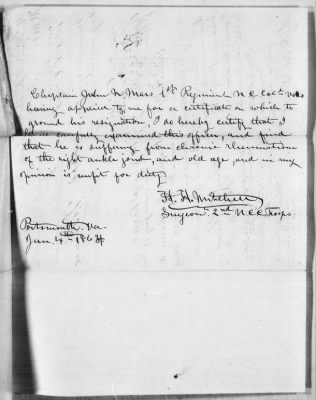 Chaplain John N. Mars 1st Regiment N C Col'd Vols
having applied to me for a certificate on which to
ground his resignation, I do hereby certify that I
have carefully examined this officer, and find
that he is suffering from chronic rheumatism
of the right ankle joint, and old age, and in my
opinion is unfit for duty.
H. H. Mitchell
Surgeon 2nd N C C Troops.
Portsmouth Va.
Jan. 4th 1864